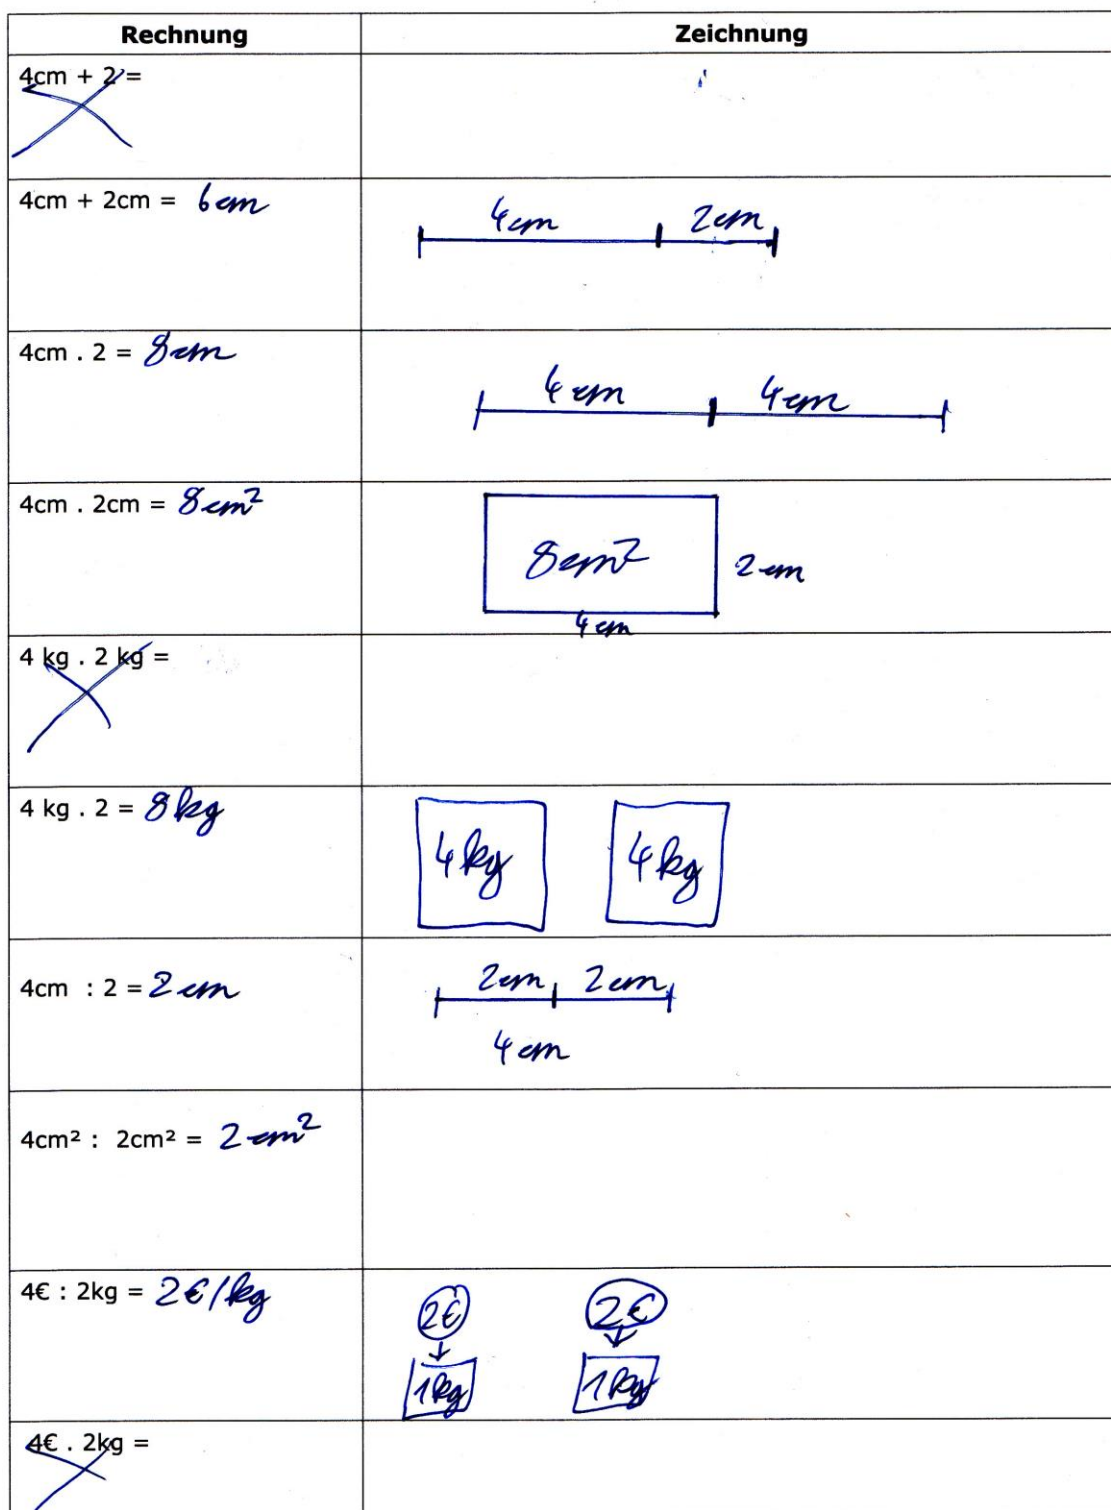 Rechnung Zeichnung
4cm + 2 =
4cm + 2cm = 6cm
4cm 2cm
4cm . 2 = 8cm
4cm 4cm
4cm . 2cm = 8cm²
8cm² 2cm
4cm
4 kg . 2 kg =
4 kg . 2 = 8kg
4kg 4kg
4cm : 2 = 2cm
2cm 2cm
4cm
4cm² : 2cm² = 2cm²
4€ : 2kg = 2€/kg
2€ 2€
1kg 1kg
4€ . 2kg =